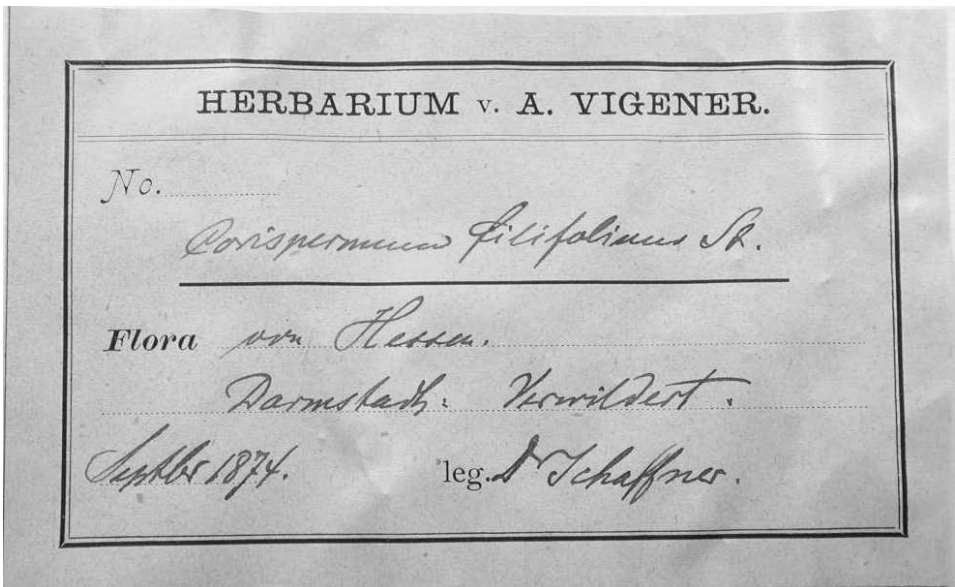 HERBARIUM v. A. VIGENER.
No.
Corispermum filifolium St.
Flora von Hessen.
Darmstadt. Verwildert.
Septbr 1874. leg. Dr Schaffner.